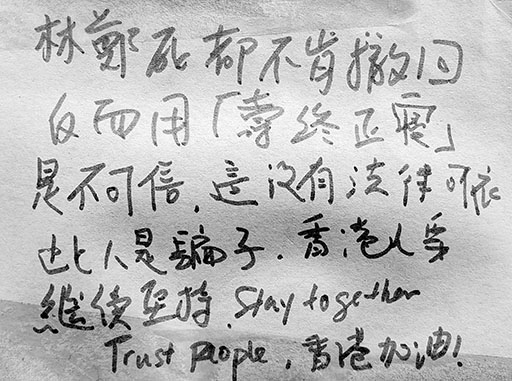 林鄭死都不肯撤回
反而用「壽終正寢」
是不可信,這沒有法律可依
此人是騙子.香港人要
繼續堅持.Stay together
Trust people,香港加油!